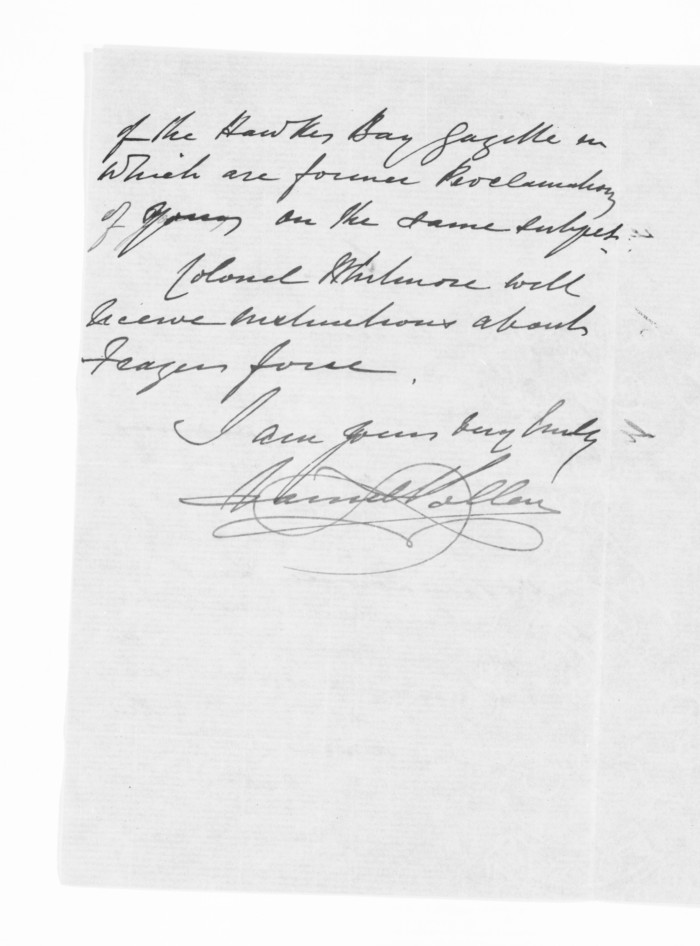 of the Hawkes Bay Gazette in
which are former Proclamations
of yours on the same subject.
Colonel Whitmore will
receive instructions about
Frasers force.
I am yours very truly
Daniel Pollen